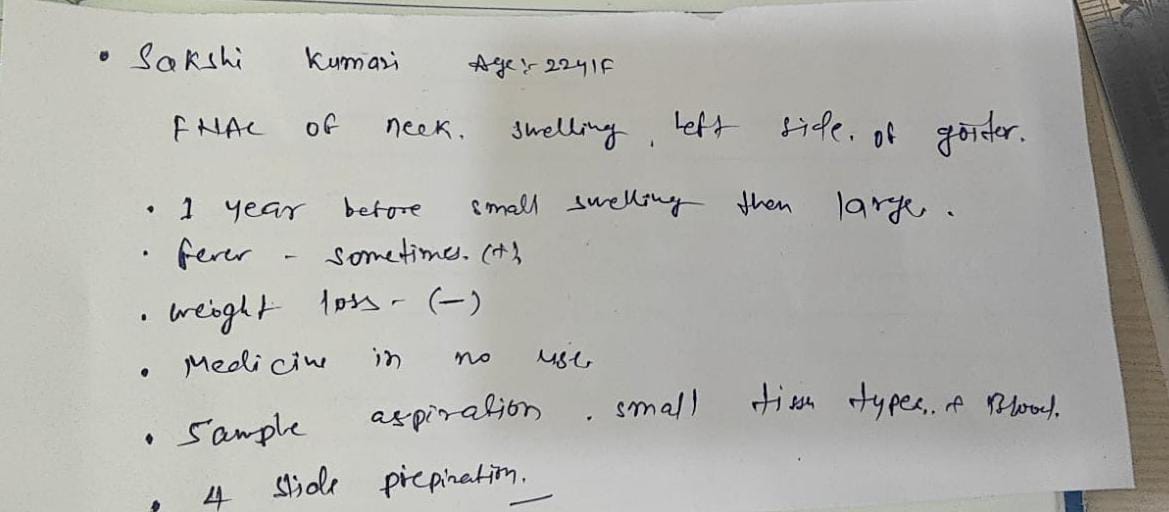 • Sakshi Kumari Age:- 22y/F
FNAC of neek. swelling, left side. of goiter.
• 1 year before small swelling then large.
• fever - sometimes. (+)
• weight loss - (-)
• Medicine in no use
• Sample aspiration. small tissu types. & Blood.
• 4 slide prepiration.